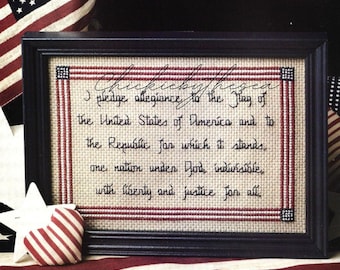 I pledge allegiance to the Flag of
the United States of America and to
the Republic for which it stands,
one nation under God, indivisible,
with liberty and justice for all.